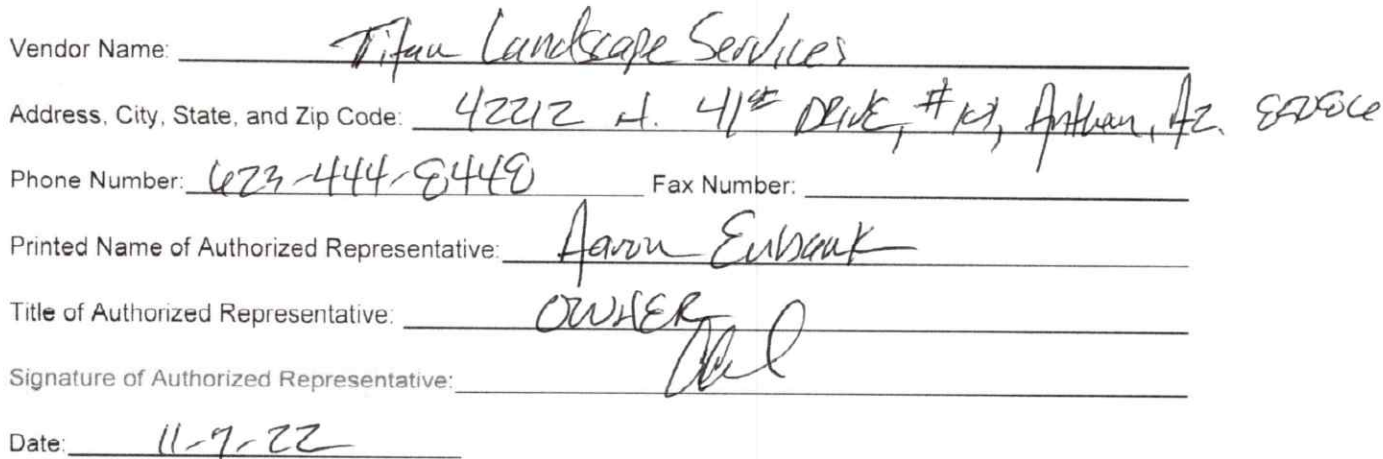 Vendor Name: Titan Landscape Services
Address, City, State, and Zip Code: 42212 N. 41st DRIVE, #101, Anthem, Az.
Phone Number: 623-444-8448 Fax Number:
Printed Name of Authorized Representative: Aaron Eubank
Title of Authorized Representative: OWNER
Signature of Authorized Representative:
Date: 11-7-22